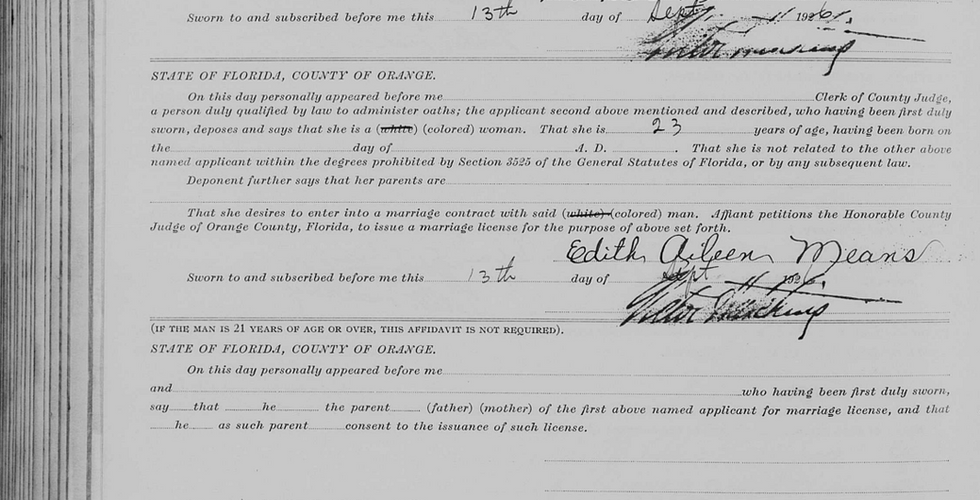 Sworn to and subscribed before me this 13th day of Sept. 1926.
STATE OF FLORIDA, COUNTY OF ORANGE.
On this day personally appeared before me Clerk of County Judge,
a person duly qualified by law to administer oaths; the applicant second above mentioned and described, who having been first duly
sworn, deposes and says that she is a (white) (colored) woman. That she is 23 years of age, having been born on
the day of A. D. . That she is not related to the other above
named applicant within the degrees prohibited by Section 3525 of the General Statutes of Florida, or by any subsequent law.
Deponent further says that her parents are
That she desires to enter into a marriage contract with said (white) (colored) man. Affiant petitions the Honorable County
Judge of Orange County, Florida, to issue a marriage license for the purpose of above set forth.
Edith Aileen Means
Sworn to and subscribed before me this 13th day of Sept 1926.
(IF THE MAN IS 21 YEARS OF AGE OR OVER, THIS AFFIDAVIT IS NOT REQUIRED).
STATE OF FLORIDA, COUNTY OF ORANGE.
On this day personally appeared before me
and who having been first duly sworn,
say that he the parent (father) (mother) of the first above named applicant for marriage license, and that
he as such parent consent to the issuance of such license.